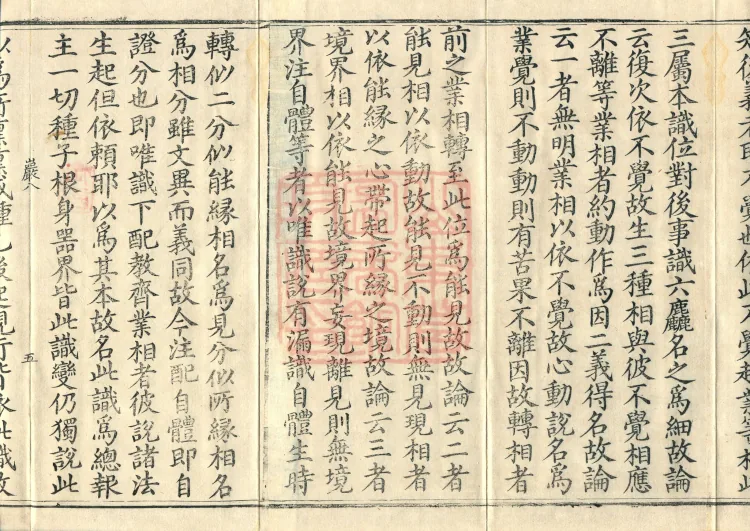 三屬本識位對後事識六麤名之爲細故論
云復次依不覺故生三種相與彼不覺相應
不離等業相者約動作爲因二義得名故論
云一者無明業相以依不覺故心動說名爲
業覺則不動動則有苦果不離因故轉相者
前之業相轉至此位爲能見故故論云二者
能見相以依動故能見不動則無見現相者
以依能緣之心帶起所緣之境故論云三者
境界相以依能見故境界妄現離見則無境
界注自體等者以唯識說有漏識自體生時
轉似二分似能緣相名爲見分似所緣相名
爲相分雖文異而義同故今注配自體即自
證分也即唯識下配教齊業相者彼說諸法
生起但依賴耶以爲其本故名此識爲總報
主一切種子根身器界皆此識變仍獨說此
巖八
五